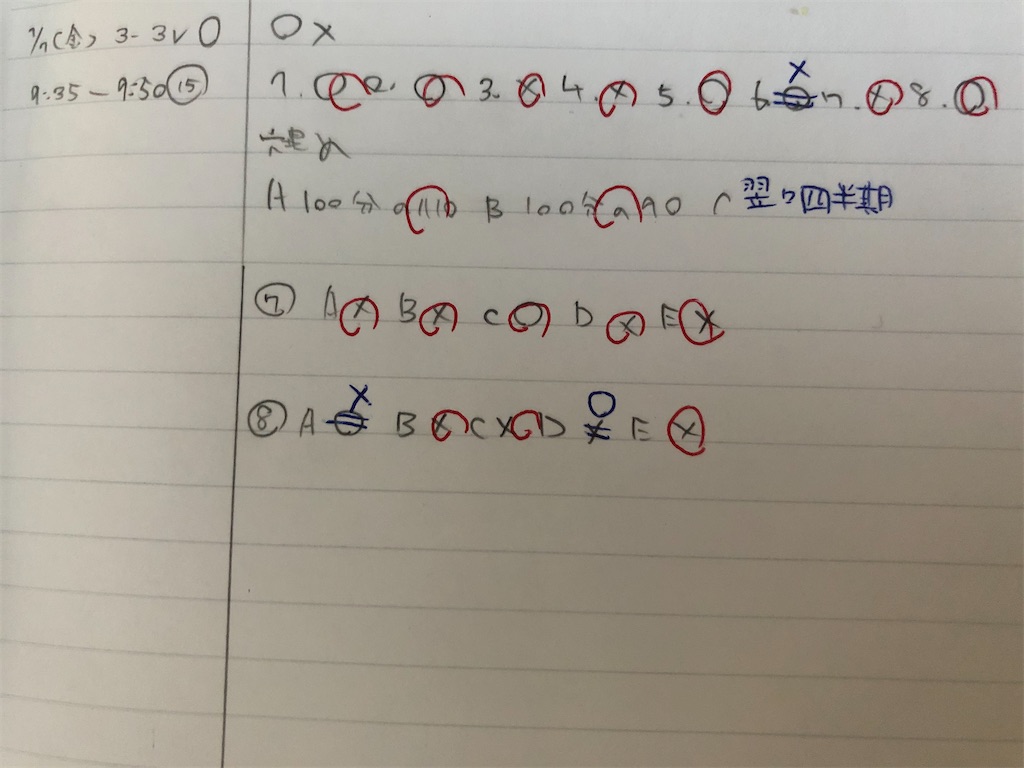 1/7(金) 3-3 ✓ ○
9:35-9:50 ⑮
○×
1. ○ 2. ○ 3. × 4. × 5. ○ 6. ○ × 7. × 8. ○
穴埋め
A 100分の110 B 100分の90 C 翌四半期
⑦ A × B × C ○ D × E ×
⑧ A ○ × B × C × D × ○ E ×